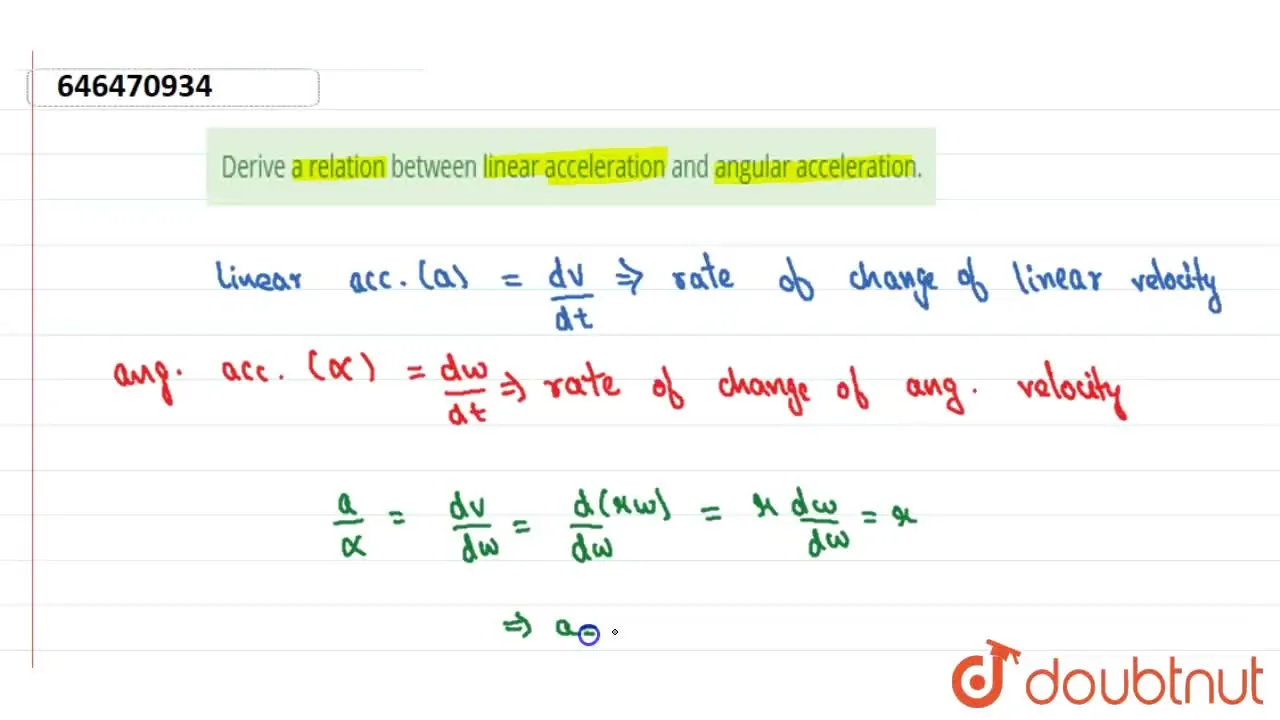 646470934
Derive a relation between linear acceleration and angular acceleration.
linear acc. (a) = dv/dt ⇒ rate of change of linear velocity
ang. acc. (α) = dω/dt ⇒ rate of change of ang. velocity
a/α = dv/dω = d(rω)/dω = r dω/dω = r
⇒ a =
doubtnut